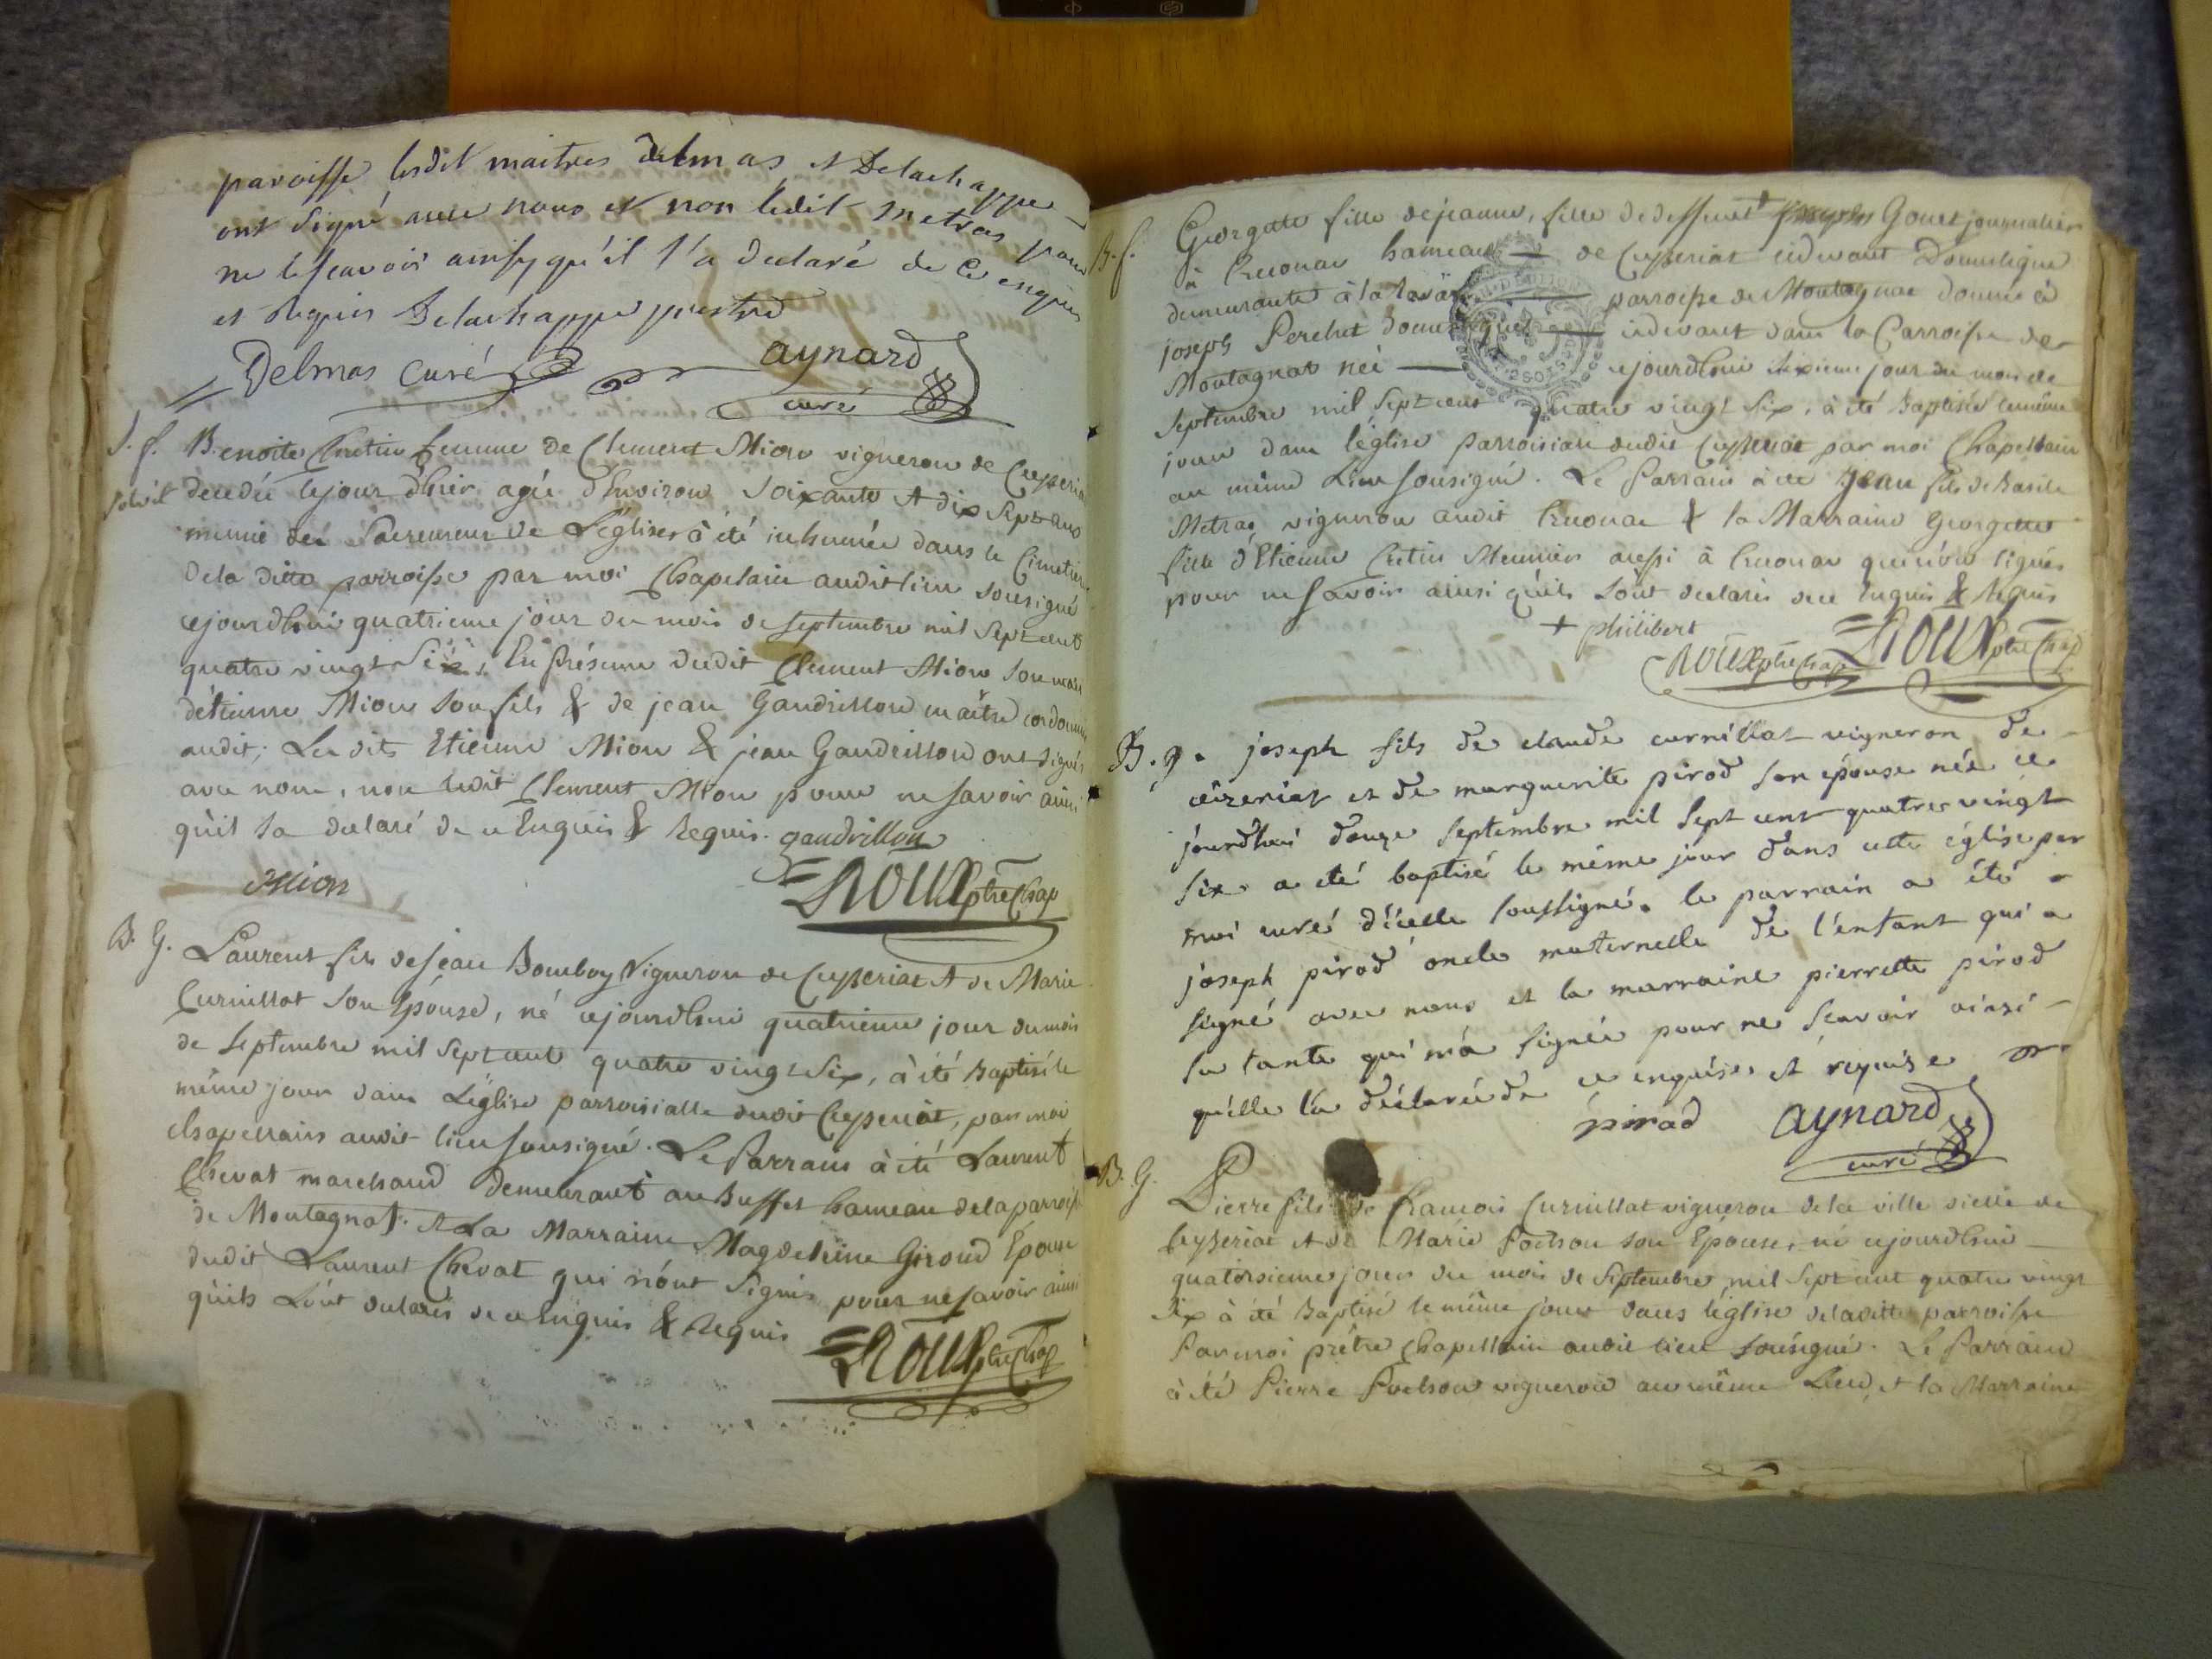 paroisse lesdit maitres delmas et Delachappe
ont signé avec nous et non ledit metras pour
ne le scavoir ainsy qu'il l'a declaré de ce enquis
et requis Delachappe prestre
Delmas curé aynard
curé
S. f.
Benoite Cretin femme de Clement Mion vigneron de Ceyseria
decedée le jour d'hier agée d'environ soixante et dix sept ans
munie des Sacremens de L'église à été inhumée dans le Cimetiere
de la ditte parroisse par moi Chapelain audit lieu sousigné
cejourdhui quatrieme jour du mois de septembre mil sept cent
quatre vingt six, En présence dudit Clement Mion son mari
d'étienne Mion son fils & de jean Gaudrillon maître cordonnier
audit; Les dits Etienne Mion & jean Gaudrillon ont signés
avec nous, non ledit Clement Mion pour ne savoir ainsi
qu'il l'a declaré de ce Enquis & Requis. gaudrillon
Mion
ROUX ptre Chap
B. G.
Laurent fils de jean Bomboy Vigneron de Ceyseriat et de Marie
Curnillat son Epouse, né cejourdhui quatrieme jour du mois
de Septembre mil sept cent quatre vingt six, à été Baptisé le
même jour dans L'église parroisialle dudit Ceyseriat, par moi
chapelain audit lieu sousigné. Le Parrain à été Laurent
Chevat marchand demeurant au Buffet hameau de la parroisse
de Montagnat. et La Marraine Magdeleine Giroud Epouse
dudit Laurent Chevat qui n'ont signés pour ne savoir ainsi
qu'ils L'ont declarés de ce Enquis & Requis
ROUX ptre Chap
B. f.
Georgette fille de jeanne, fille de deffunt + Gouet journalier
à Cuonar hameau — de Ceyseriat cidevant Domestique
demeurante à la parroisse de Montagnat donnée à
joseph Perchet Domestique — cidevant dans la Parroisse de
Montagnat née — cejourdhui sixieme jour du mois de
septembre mil sept cent quatre vingt six, à été Baptisée le même
jour dans l'église parroisiale dudit Ceyseriat par moi Chapelain
au même Lieu sousigné. Le Parrain à été Jean fils de Basile
Metras vigneron audit Cuonar & la Marraine Georgette
fille d'Etienne Cretin Meunier aussi à Cuonar qui n'ont signés
pour ne savoir ainsi qu'ils L'ont declarés de ce Enquis & Requis
+ philibert
ROUX ptre Chap ROUX ptre Chap
B. g. joseph fils de claude curnillat vigneron de
ceizeriat et de marguerite pirod son épouse née ce
jourdhui douze septembre mil sept cent quatres vingt
six a eté baptisé le même jour dans cette église par
moi curé d'icelle soussigné. le parrain a été
joseph pirod oncle maternelle de l'enfant qui a
signé avec nous et la marraine pierrette pirod
sa tante qui n'a signée pour ne scavoir ainsi
qu'elle l'a déclaré de ce enquise et requise
pirod aynard
curé
B. G.
Pierre fils de francois Curnillat vigneron de la ville vielle de
Ceyseriat et de Marie Pochon son Epouse, né cejourdhui
quatorsieme jour du mois de Septembre mil sept cent quatre vingt
six à été Baptisé le même jour dans l'église de laditte parroisse
Par moi prêtre Chapellain audit lieu sousigné. Le Parrain
à été Pierre Pochon vigneron au même Lieu, et la Marraine